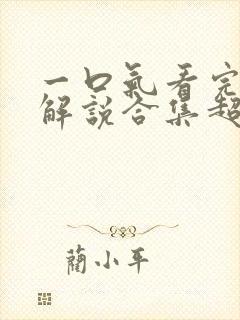 一口氣看完
解說合集超
藺小平